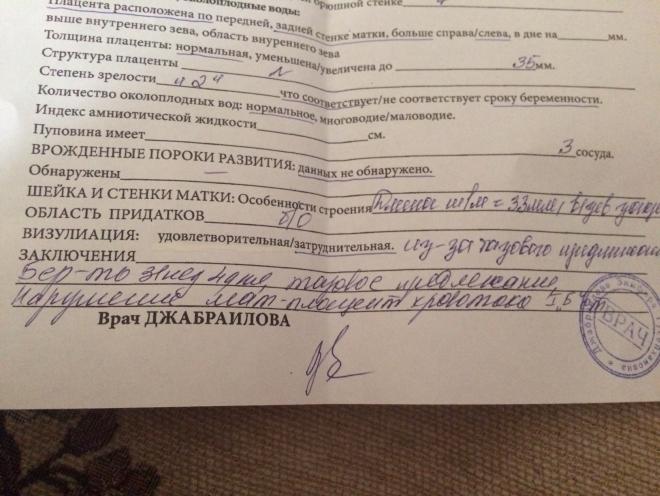 околоплодные воды: брюшной стенке
Плацента расположена по передней, задней стенке матки, больше справа/слева, в дне на мм.
выше внутреннего зева, область внуреннего зева
Толщина плаценты: нормальная, уменьшена/увеличена до 35 мм.
Структура плаценты N
Степень зрелости "2" что соответствует/не соответствует сроку беременности.
Количество околоплодных вод: нормальное, многоводие/маловодие.
Индекс амниотической жидкости см.
Пуповина имеет 3 сосуда.
ВРОЖДЕННЫЕ ПОРОКИ РАЗВИТИЯ: данных не обнаружено.
Обнаружены —
ШЕЙКА И СТЕНКИ МАТКИ: Особенности строения = 33мм,
ОБЛАСТЬ ПРИДАТКОВ б/о
ВИЗУЛИАЦИЯ: удовлетворительная/затруднительная. из-за тазового предлежания
ЗАКЛЮЧЕНИЯ
Бер-ть 31нед 4дня, тазовое предлежание
Нарушение мат-плацент кровотока I Б ст
Врач ДЖАБРАИЛОВА
ВРАЧ